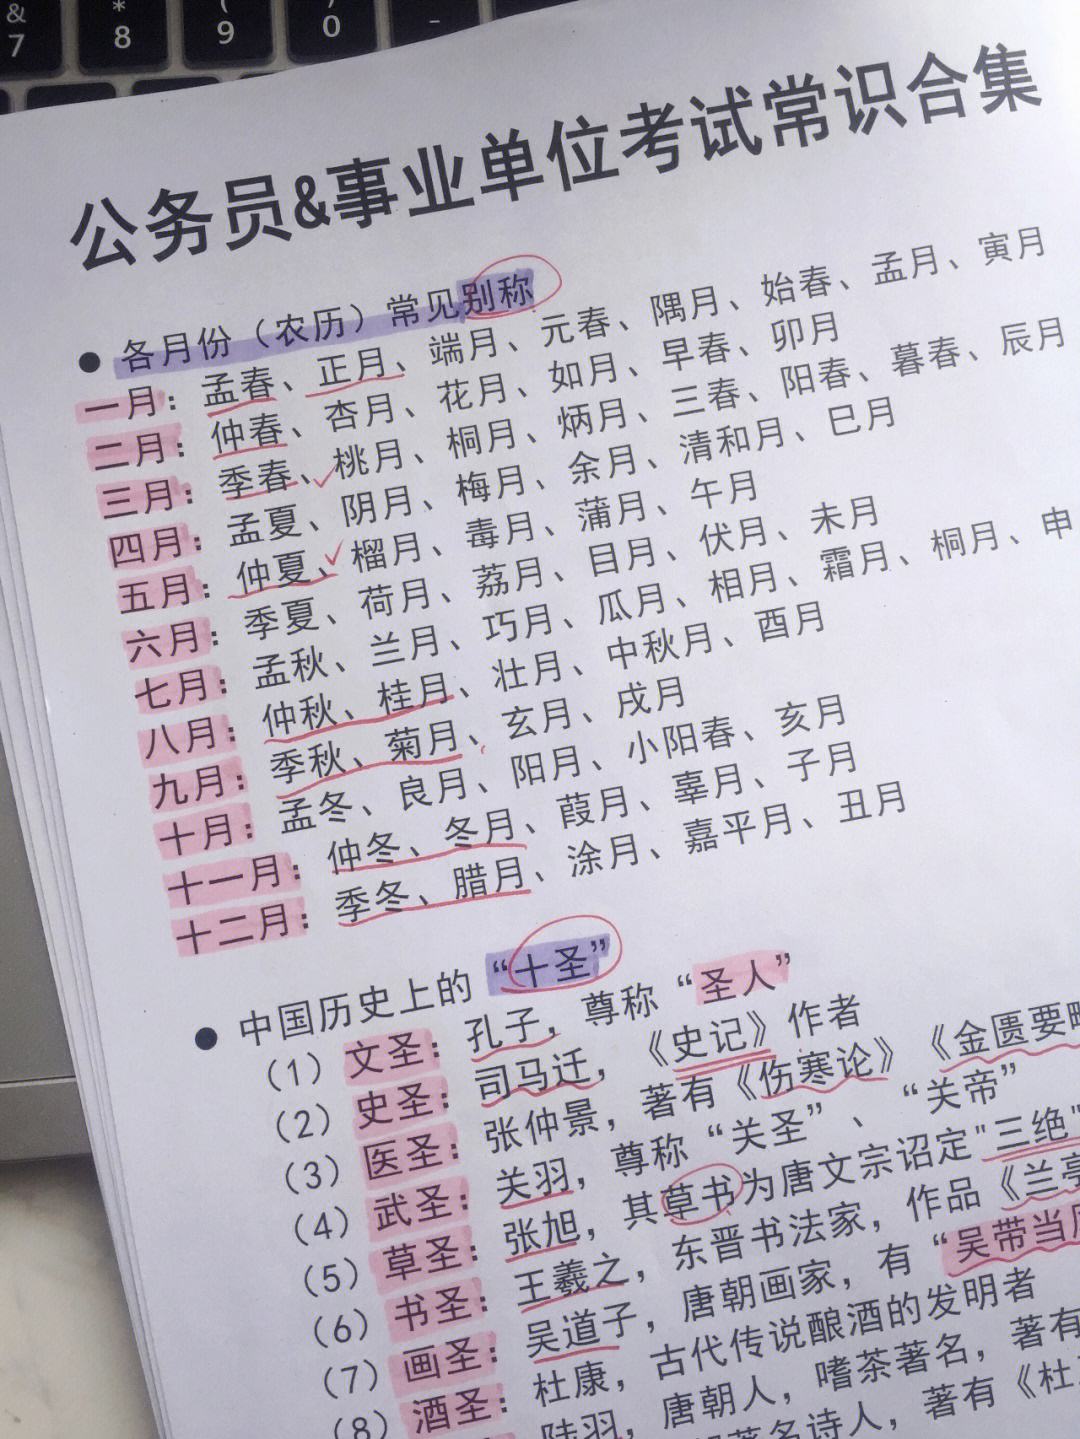 & 7
* 8
( 9
) 0
-
公务员&事业单位考试常识合集
● 各月份（农历）常见别称
一月：孟春、正月、端月、元春、隅月、始春、孟月、寅月
二月：仲春、杏月、花月、如月、早春、卯月
三月：季春、桃月、桐月、炳月、三春、阳春、暮春、辰月
四月：孟夏、阴月、梅月、余月、清和月、巳月
五月：仲夏、榴月、毒月、蒲月、午月
六月：季夏、荷月、荔月、目月、伏月、未月
七月：孟秋、兰月、巧月、瓜月、相月、霜月、桐月、申
八月：仲秋、桂月、壮月、中秋月、酉月
九月：季秋、菊月、玄月、戌月
十月：孟冬、良月、阳月、小阳春、亥月
十一月：仲冬、冬月、葭月、辜月、子月
十二月：季冬、腊月、涂月、嘉平月、丑月
● 中国历史上的“十圣”
（1）文圣：孔子，尊称“圣人”
（2）史圣：司马迁，《史记》作者
（3）医圣：张仲景，著有《伤寒论》《金匮要略
（4）武圣：关羽，尊称“关圣”、“关帝”
（5）草圣：张旭，其草书为唐文宗诏定"三绝"
（6）书圣：王羲之，东晋书法家，作品《兰亭
（7）画圣：吴道子，唐朝画家，有“吴带当风
（8）酒圣：杜康，古代传说酿酒的发明者
陆羽，唐朝人，嗜茶著名，著有
著名诗人，著有《杜